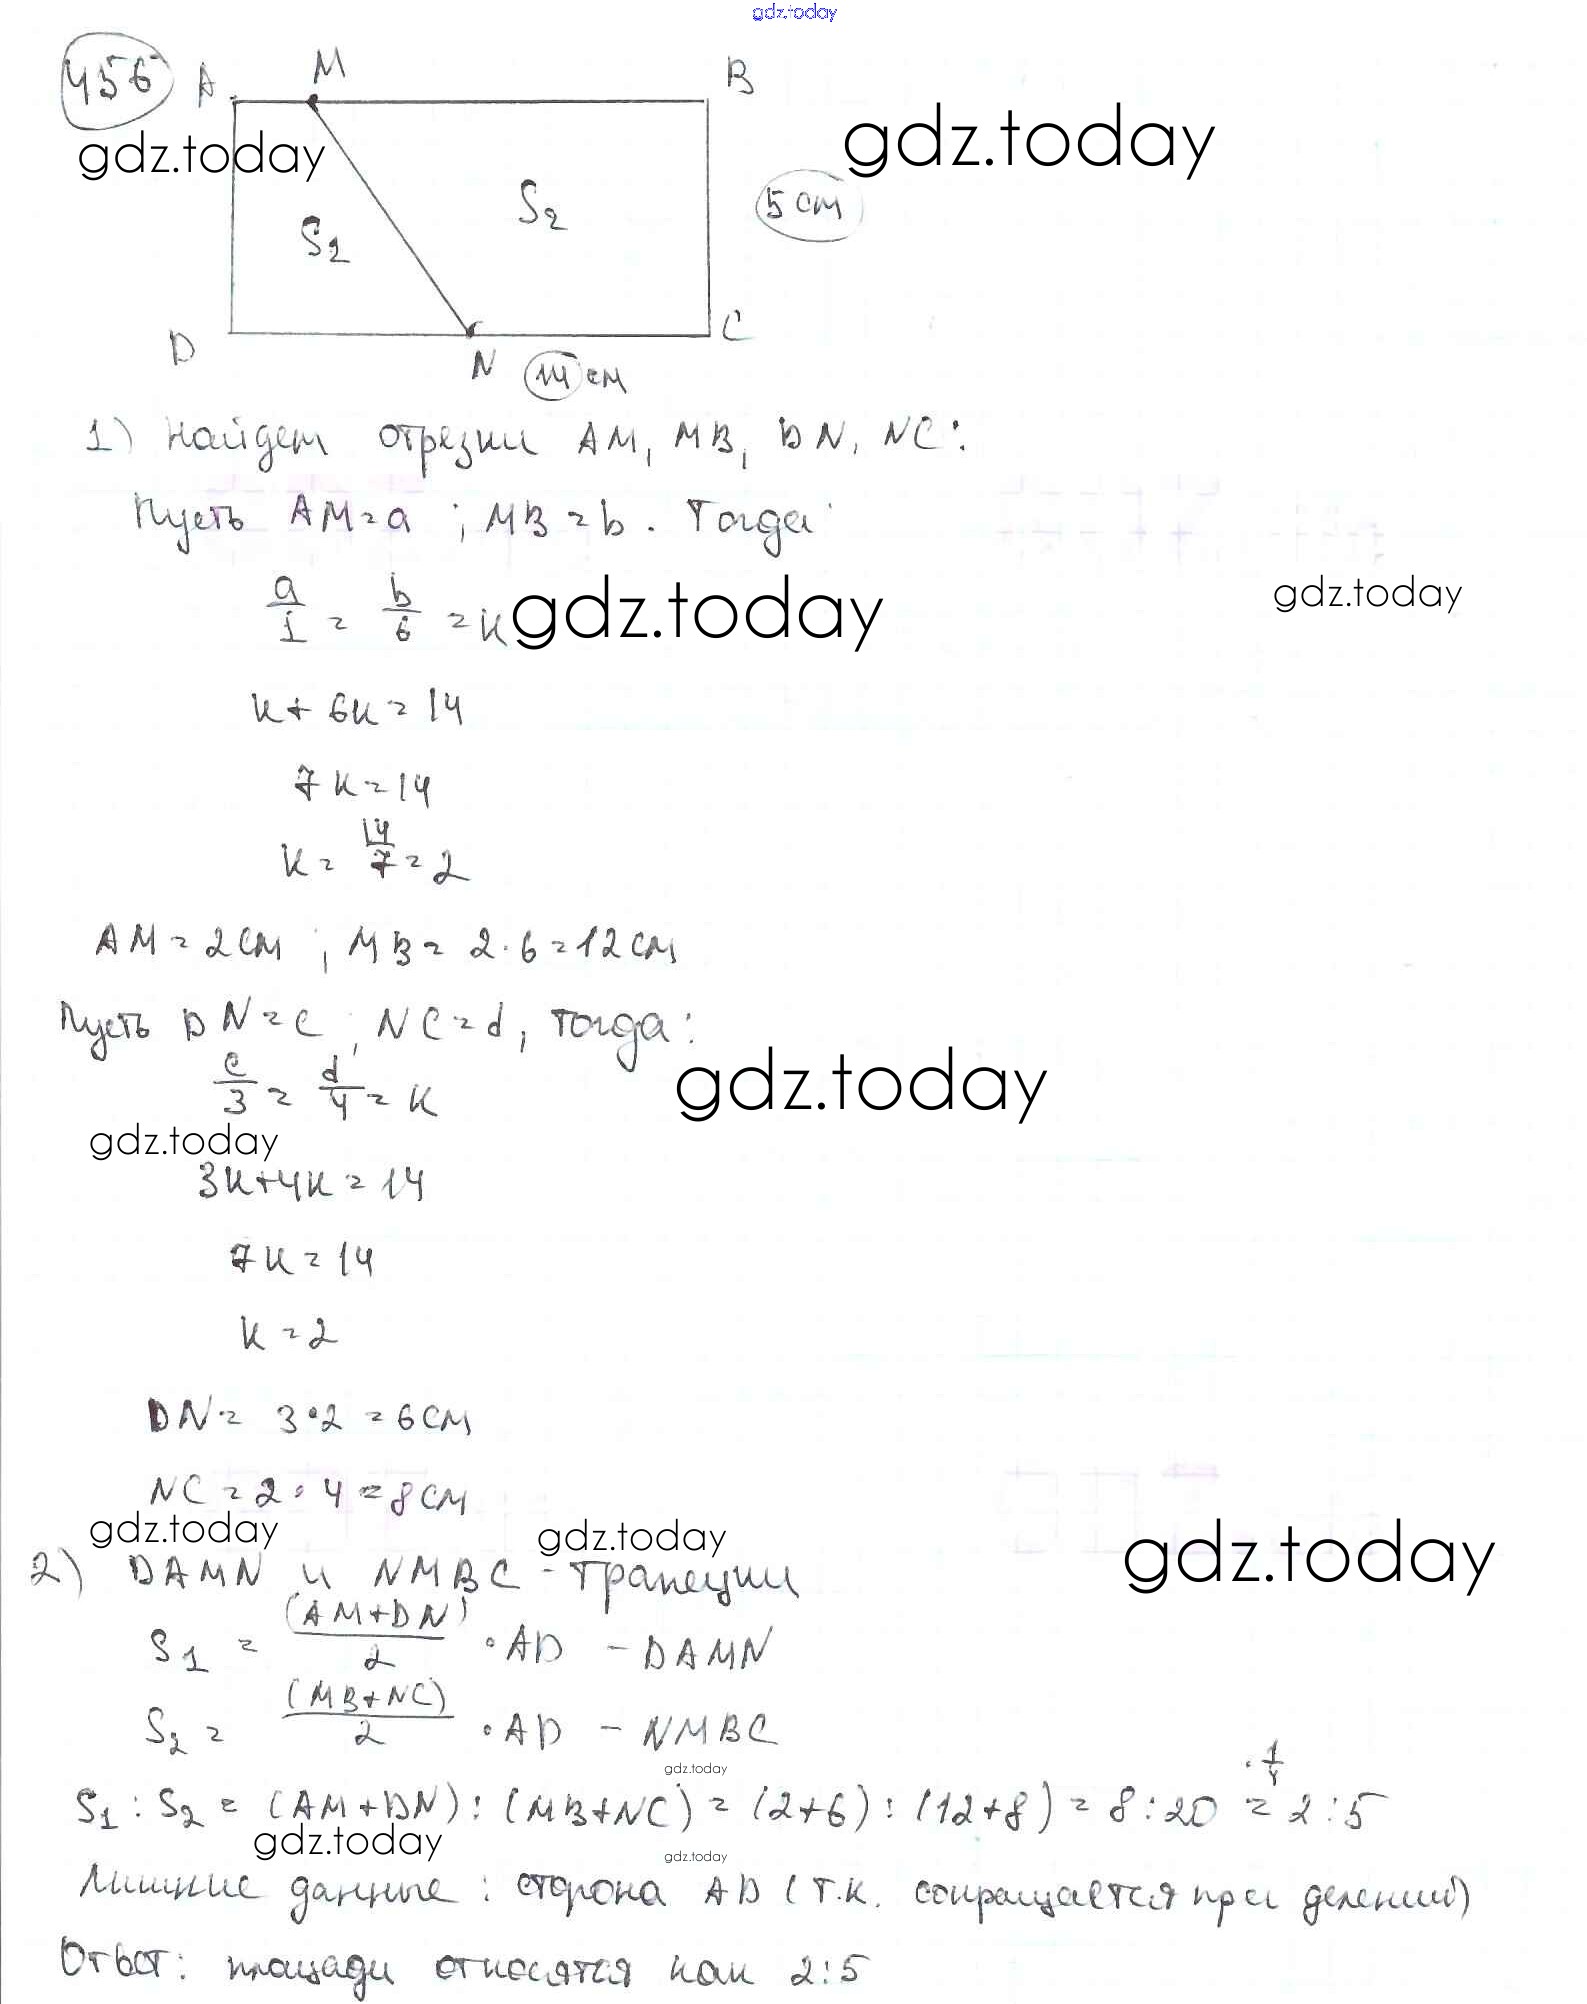 gdz.today
456 A M B
gdz.today gdz.today
S2 5 см
S1
D N 14 см C
1) Найдем отрезки AM, MB, DN, NC:
Пусть AM = a ; MB = b . Тогда
a/1 = b/6 = к gdz.today gdz.today
к + 6к = 14
7к = 14
к = 14/7 = 2
AM = 2 см ; MB = 2 · 6 = 12 см
Пусть DN = c , NC = d , тогда:
c/3 = d/4 = к gdz.today
gdz.today
3к + 4к = 14
7к = 14
к = 2
DN = 3 · 2 = 6 см
NC = 2 · 4 = 8 см
gdz.today gdz.today gdz.today
2) DAMN и NMBC - трапеции
S1 = (AM + DN)/2 · AD – DAMN
S2 = (MB + NC)/2 · AD – NMBC
gdz.today
S1 : S2 = (AM + DN) : (MB + NC) = (2 + 6) : (12 + 8) = 8 : 20 · 1/4 = 2 : 5
gdz.today gdz.today
Лишние данные : сторона AD (т.к. сокращается при делении)
Ответ: площади относятся как 2:5